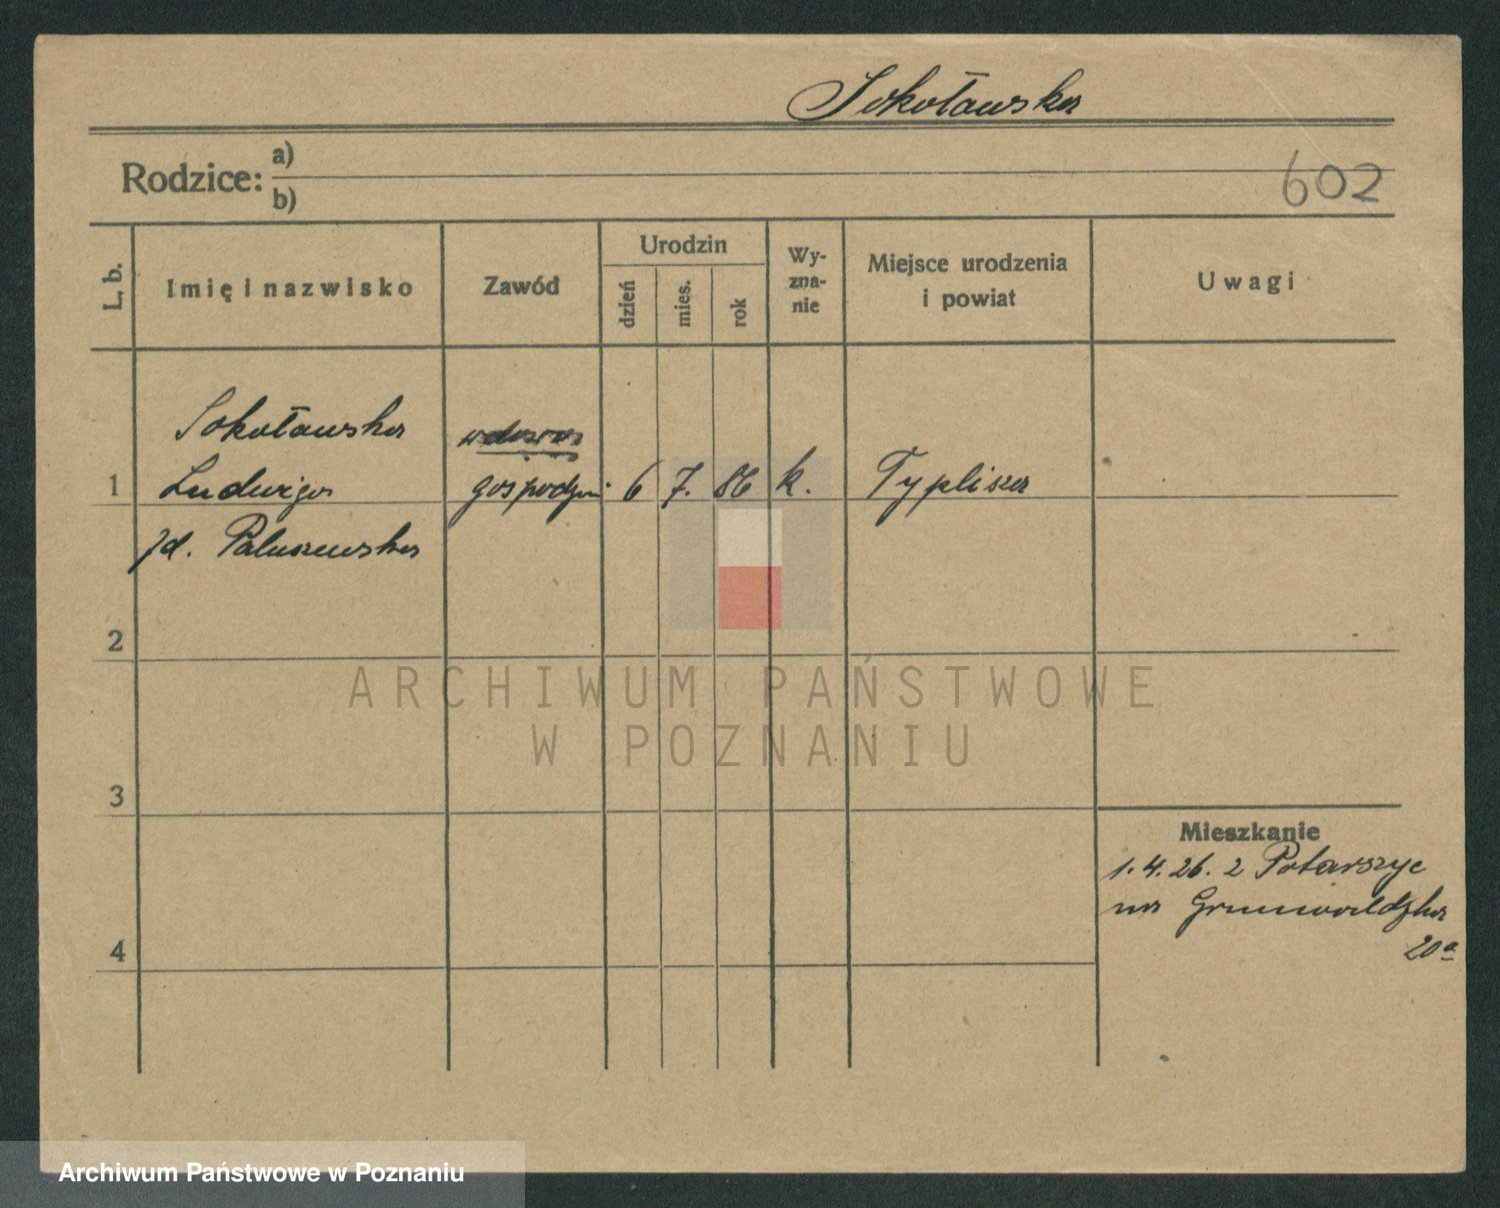 Sokoławska
Rodzice: a)
b)
602
L. b.
Imię i nazwisko
Zawód
Urodzin
dzień
mies.
rok
Wy-
zna-
nie
Miejsce urodzenia
i powiat
Uwagi
Sokoławska
wdowa
1 Ludwiga gospodyni 6 7. 86 k.
Paluszewska
2
ARCHIWUM PAŃSTWOWE
W POZNANIU
3
Mieszkanie
1. 4. 26. z Potarszyc
na Grunwaldzka
20a
4
Archiwum Państwowe w Poznaniu